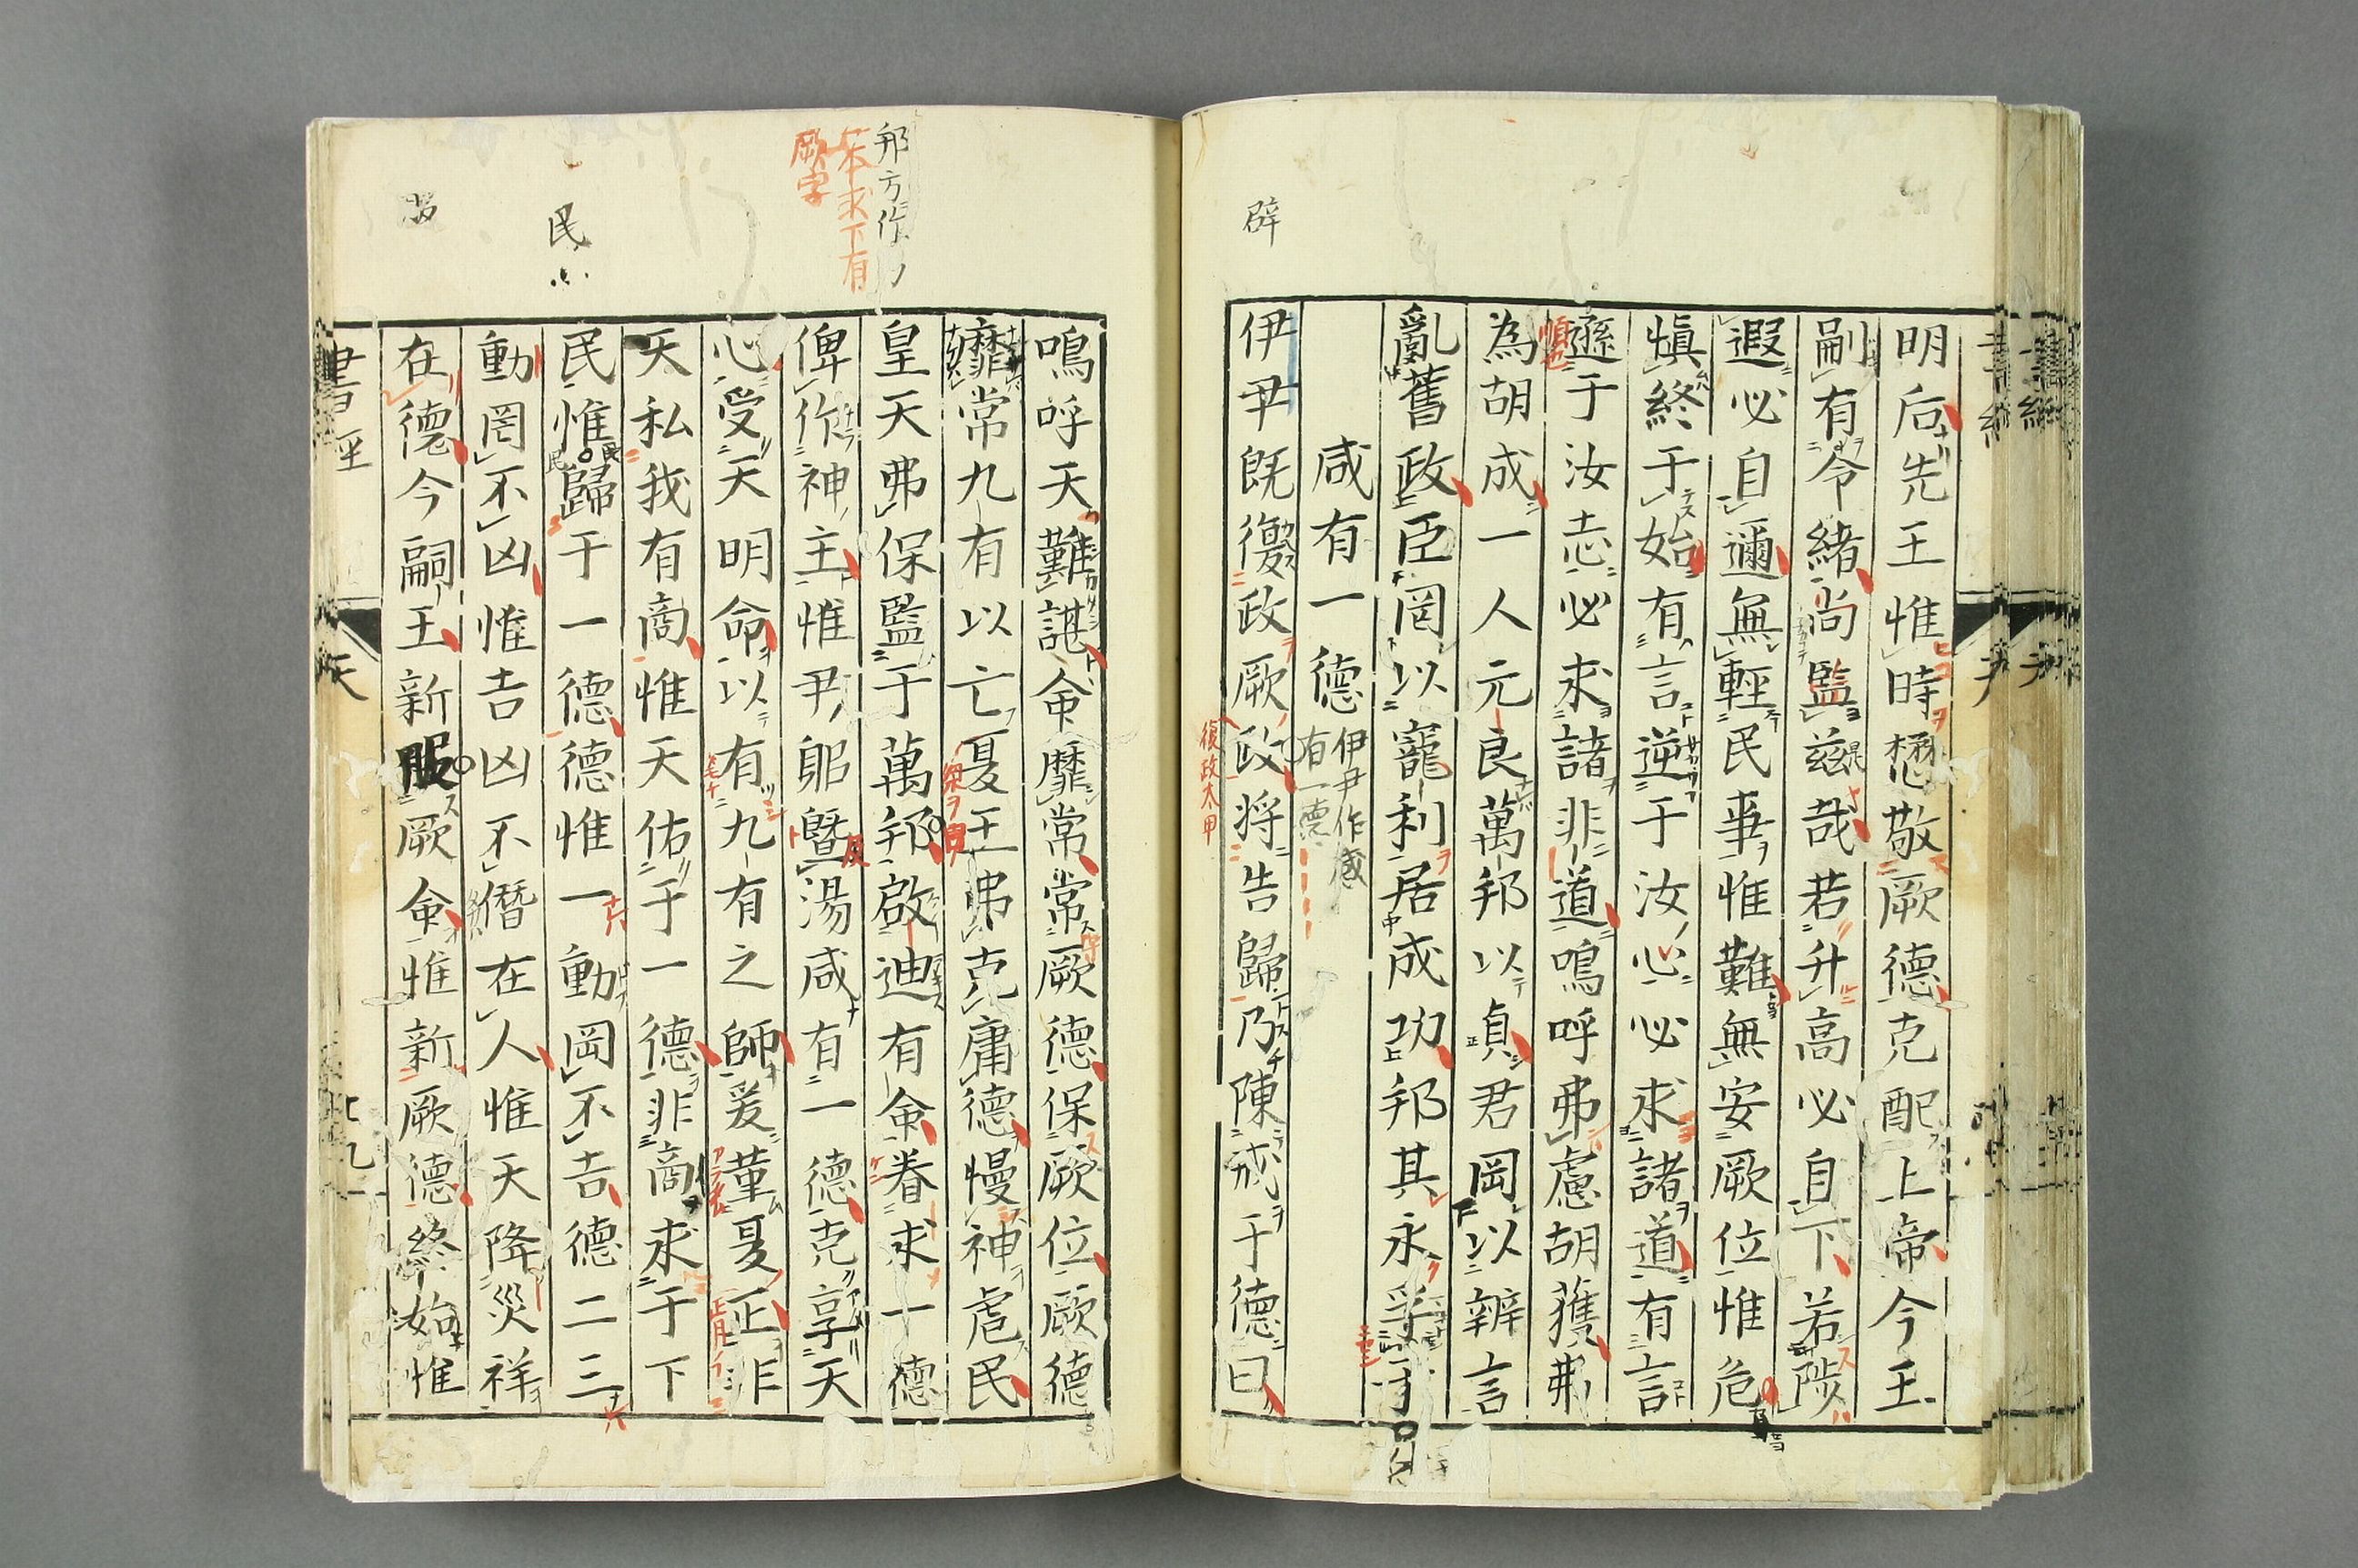 明后先王惟時懋敬厥德克配上帝今王
嗣有令緒尚監茲哉若升高必自下若陟
遐必自邇無輕民事惟難無安厥位惟危
慎終于始有言逆于汝心必求諸道有言
遜于汝志必求諸非道嗚呼弗慮胡獲弗
為胡成一人元良萬邦以貞君罔以辨言
亂舊政臣罔以寵利居成功邦其永孚于
咸有一德
伊尹作咸
有一德
伊尹既復政厥政将告歸乃陳戒于德曰
復政太甲
辟
嗚呼天難諶命靡常常厥德保厥位厥德
靡常九有以亡夏王弗克庸德慢神虐民
皇天弗保監于萬邦啟迪有命眷求一德
俾作神主惟尹躬曁湯咸有一德克享天
心受天明命以有九有之師爰革夏正非
天私我有商惟天佑于一德非商求于下
民惟歸于一德德惟一動罔不吉德二三
動罔不凶惟吉凶不僭在人惟天降災祥
在德今嗣王新服厥命惟新厥德終始惟
邦方作
一本求下有
厥字
民
書經